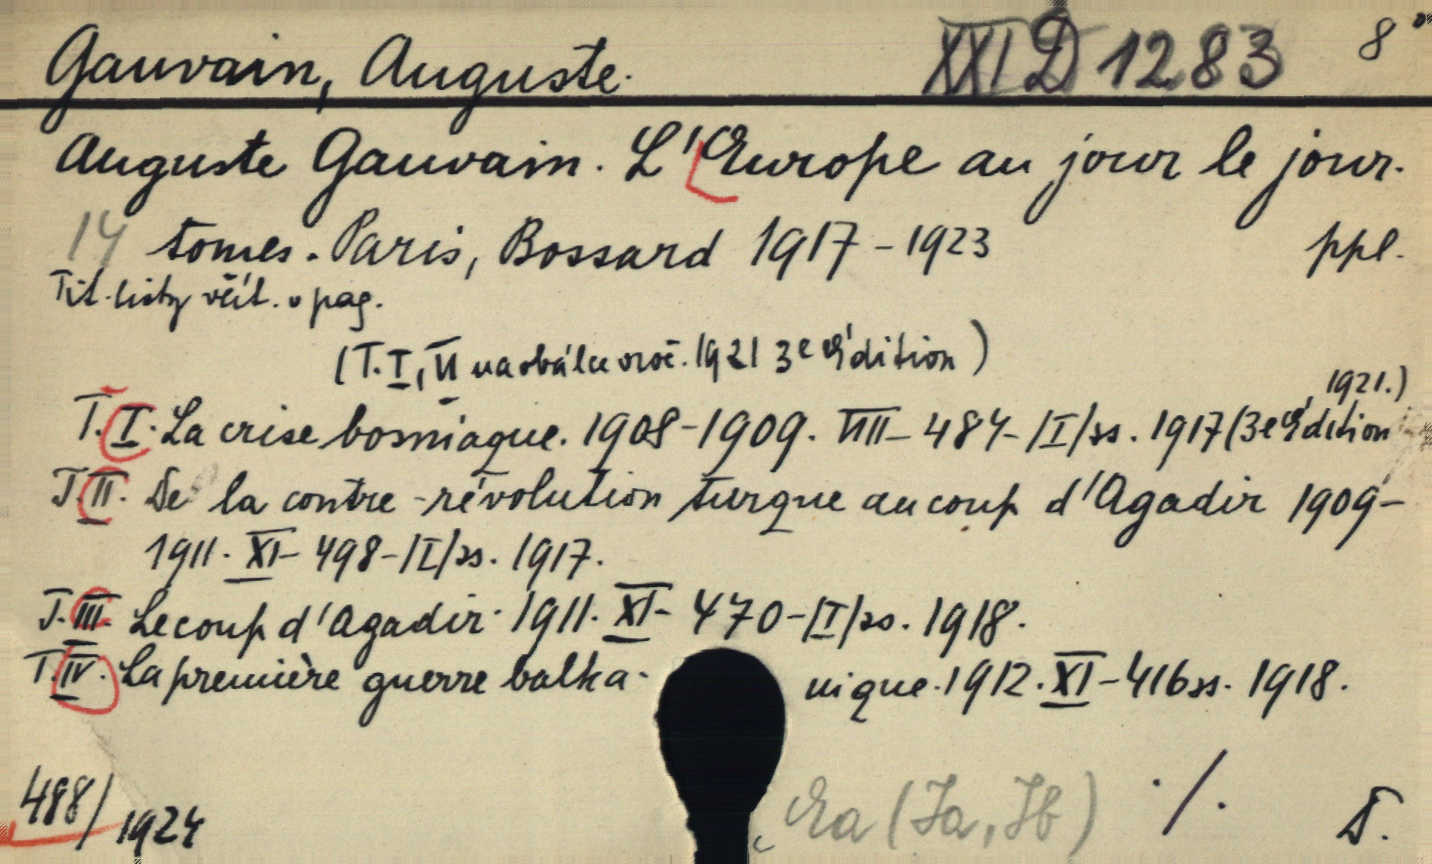 Gauvain, Auguste. XXI D 1283 8°
Auguste Gauvain. L'Europe au jour le jour.
14 tomes. Paris, Bossard 1917-1923 ppl.
Tit. listy včít. v pag.
(T. I, II na obálce vroč. 1921 3e édition)
T. I. La crise bosniaque. 1908-1909. VIII-484-/I/ss. 1917 (3e édition 1921.)
T. II. De la contre-révolution turque au coup d'Agadir 1909-
1911. XI-498-/I/ss. 1917.
T. III. Le coup d'Agadir. 1911. XI-470-/I/ss. 1918.
T. IV. La première guerre balkanique. 1912. XI-416ss. 1918.
488/1924 Ea (Ja, Jb) ./. D.